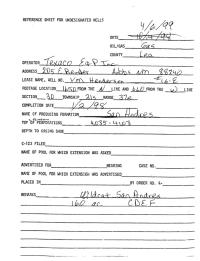 REFERENCE SHEET FOR UNDESIGNATED WELLS
4/6/99
DATE
OIL/GAS Gas
COUNTY Lea
OPERATOR Texaco E&P Inc
ADDRESS 205 E Bender Hobbs NM 88240
LEASE NAME, WELL NO. V M Henderson #16-E
FOOTAGE LOCATION, 1650 FROM THE N LINE AND 660 FROM THE W LINE
SECTION 30 TOWNSHIP 21s RANGE 37e
COMPLETION DATE 1/2/98
NAME OF PRODUCING FORMATION San Andres
TOP OF PERFORATIONS 4035-4103
DEPTH TO CASING SHOE
C-123 FILED
NAME OF POOL FOR WHICH EXTENSION WAS ASKED
ADVERTISED FOR HEARING CASE NO.
NAME OF POOL FOR WHICH EXTENSION WAS ADVERTISED
PLACED IN BY ORDER NO. R-
REMARKS Wildcat San Andres
160 ac. CDEF